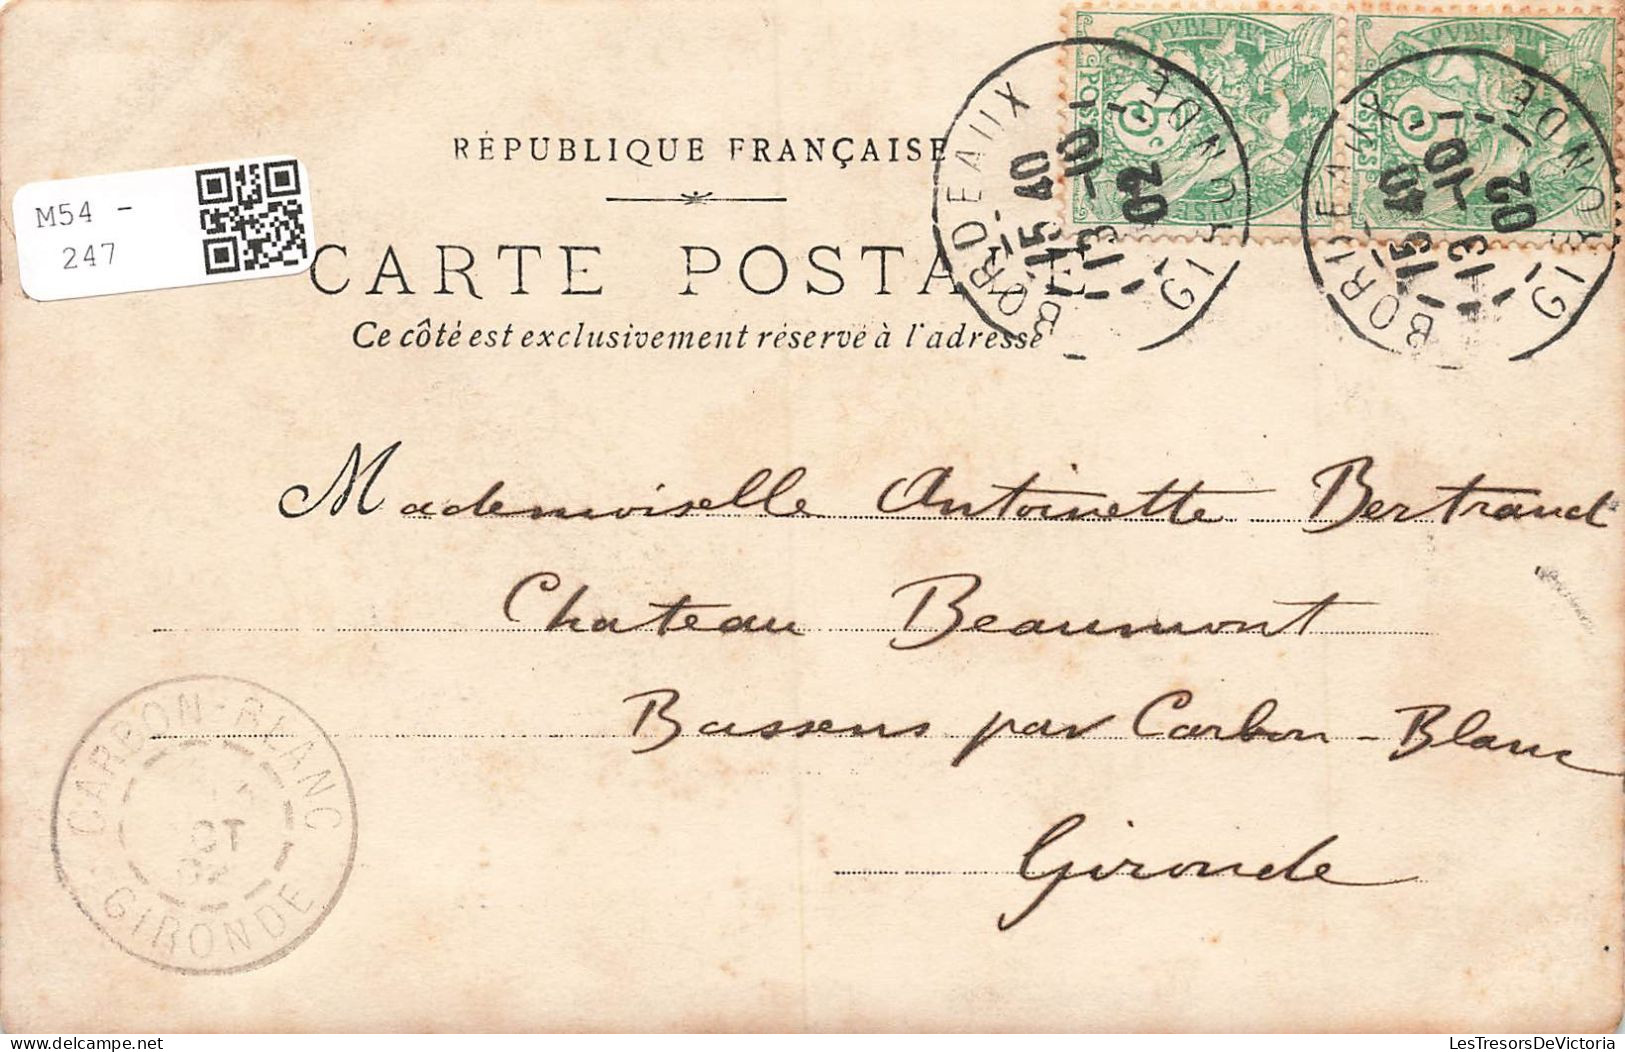 RÉPUBLIQUE FRANÇAISE
M54 -
247
CARTE POSTALE
Ce côté est exclusivement réservé à l'adresse
BORDEAUX
GIRONDE
15 40
13 -10
02
BORDEAUX
GIRONDE
15 40
13 -10
02
POSTES
5c
POSTES
5c
Mademoiselle Antoinette Bertrand
Chateau Beaumont
Bassens par Carbon-Blanc
Gironde
CARBON-BLANC
OCT
02
GIRONDE
LesTresorsDeVictoria
www.delcampe.net